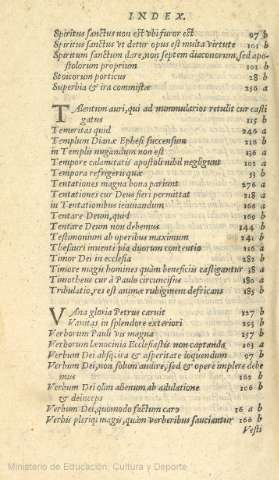 INDEX.
Spiritus sanctus non est vbi furor est 97 b
Spiritus sanctus vt detur opus est multa virtute 101 b
Spiritum sanctum dare, non septem diaconorum, sed apo-
stolorum proprium 101 b
Stoicorum porticus 28 b
Superbia & ira commistæ 250 a
TAlentum auri, qui ad nummularios retulit cur casti
gatus 115 b
Temeritas quid 249 a
Templum Dianæ Ephesi succensum 218 b
in Templis nugandum non est 136 a
Tempore calamitatis apostoli nihil negligunt 105 a
Tempora refrigerij quæ 53 b
Tentationes magna bona pariunt 276 a
Tentationes cur Deus fieri permittat 218 a
in Tentationibus ieiunandum 166 a
Tentare Deum, quid 169 b
Tentare Deum non debemus 144 b
Testimonium ab operibus maximum 241 b
Thesauri inuenti pia duorum contentio 116 a
Timor Dei in ecclesia 282 b
Timore magis homines quàm beneficijs castigantur 38 a
Timotheus cur à Paulo circuncisus 180 a
Tribulatio, res est animæ rubiginem defricans 185 b
VAna gloria Petrus caruit 127 b
Vanitas in splendore exteriori 253 b
Verborum Pauli vis magna 257 b
Verborum lenocinia Ecclesiastis non captanda 163 a
Verbum Dei absq; ira & asperitate loquendum 97 b
Verbum Dei, non solum audire, sed & opere implere debe
mus 101 b
Verbum Dei olim alienum, ab adulatione 100 b
& deinceps
Verbum Dei, quomodo factum caro 16 a b
Verbis plerique magis, quàm verberibus sauciantur 100 b
Vesti
Ministerio de Educación, Cultura y Deporte